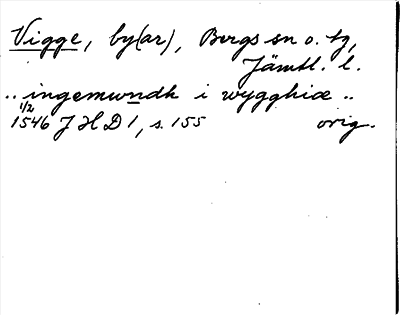 Vigge, by(ar), Bergs sn o. tg,
Jämtl. l.
.. ingemundh i wygghiæ ..
1/2
1546 JHD 1, s. 155 orig.